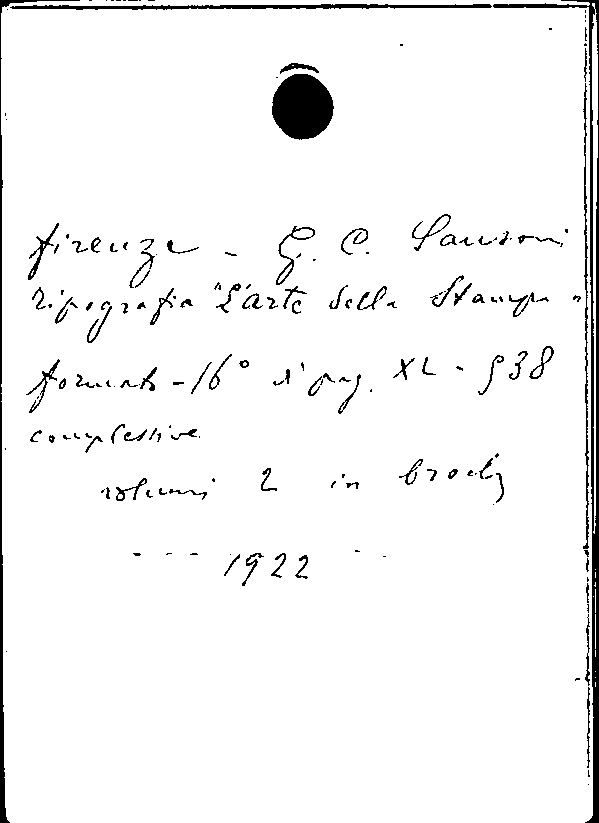 Firenze - G. C. Sansoni
Tipografia "L'arte della Stampa"
formato - 16° di pag. XL - 938
complessive
volumi 2 in broch
--- 1922 --